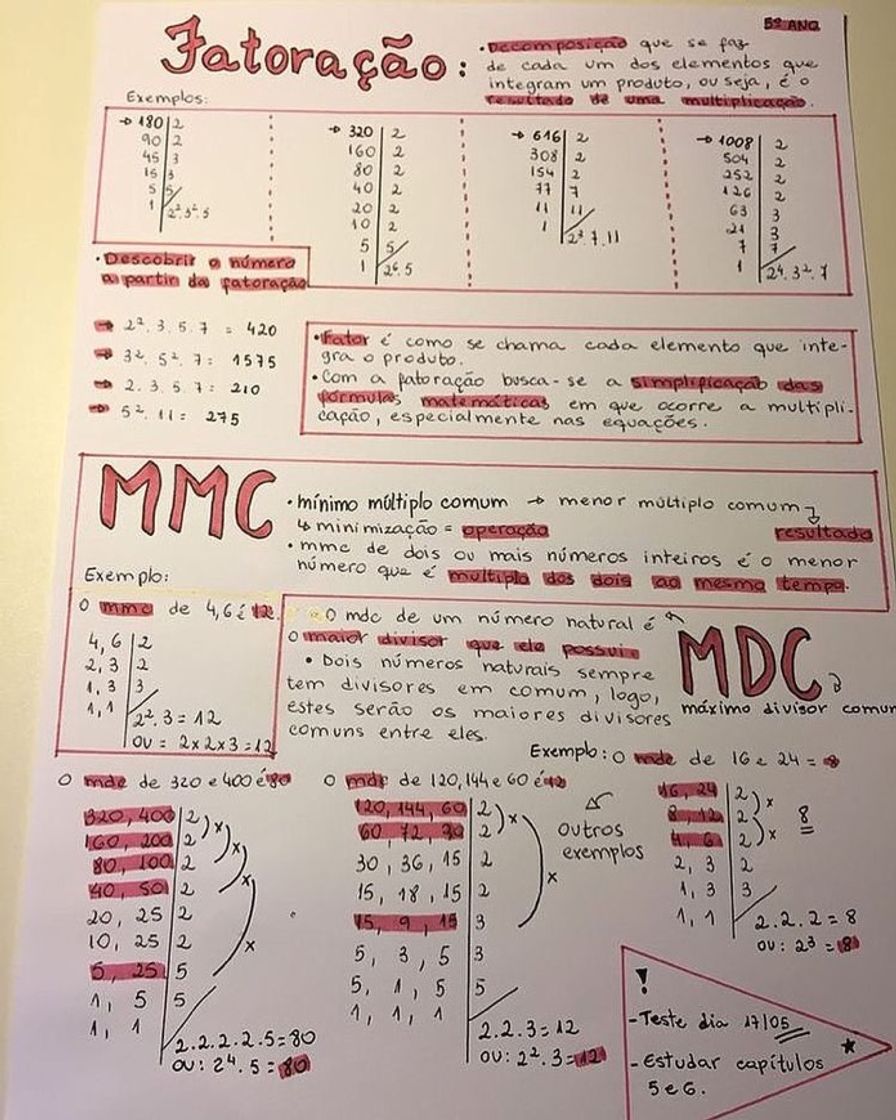 5º ANO
Fatoração:
• Decomposição que se faz
de cada um dos elementos que
integram um produto, ou seja, é o
resultado de uma multiplicação.
Exemplos:
→ 180 | 2
90 | 2
45 | 3
15 | 3
5 | 5
1 | 2².3².5
→ 320 | 2
160 | 2
80 | 2
40 | 2
20 | 2
10 | 2
5 | 5
1 | 2⁶.5
→ 616 | 2
308 | 2
154 | 2
77 | 7
11 | 11
1 | 2³.7.11
→ 1008 | 2
504 | 2
252 | 2
126 | 2
63 | 3
21 | 3
7 | 7
1 | 2⁴.3².7
• Descobrir o número
a partir da fatoração
→ 2².3.5.7 = 420
→ 3².5².7 = 1575
→ 2.3.5.7 = 210
→ 5².11 = 275
• Fator é como se chama cada elemento que inte-
gra o produto.
• Com a fatoração busca-se a simplificação das
fórmulas matemáticas em que ocorre a multipli-
cação, especialmente nas equações.
MMC
• mínimo múltiplo comum → menor múltiplo comum
↳ minimização = operação resultado
• mmc de dois ou mais números inteiros é o menor
número que é multiplo dos dois ao mesmo tempo.
Exemplo:
O mmc de 4,6 é 12.
4, 6 | 2
2, 3 | 2
1, 3 | 3
1, 1 | 2².3 = 12
ou = 2x2x3 = 12
MDC
máximo divisor comum
• O mdc de um número natural é
o maior divisor que ele possui.
• Dois números naturais sempre
tem divisores em comum, logo,
estes serão os maiores divisores
comuns entre eles.
Exemplo: O mdc de 16 e 24 = 8
16, 24 | 2
8, 12 | 2
4, 6 | 2
2, 3 | 2
1, 3 | 3
1, 1 | 2.2.2 = 8
ou: 2³ = 8
x
x
8
O mdc de 320 e 400 é 80
320, 400 | 2
160, 200 | 2
80, 100 | 2
40, 50 | 2
20, 25 | 2
10, 25 | 2
5, 25 | 5
1, 5 | 5
1, 1
2.2.2.2.5 = 80
ou: 2⁴.5 = 80
x
x
x
x
O mdc de 120, 144 e 60 é 12
120, 144, 60 | 2
60, 72, 30 | 2
30, 36, 15 | 2
15, 18, 15 | 2
15, 9, 15 | 3
5, 3, 5 | 3
5, 1, 5 | 5
1, 1, 1
2.2.3 = 12
ou: 2².3 = 12
x
x
Outros
exemplos
!
- Teste dia 17/05
- Estudar capítulos
5 e 6.